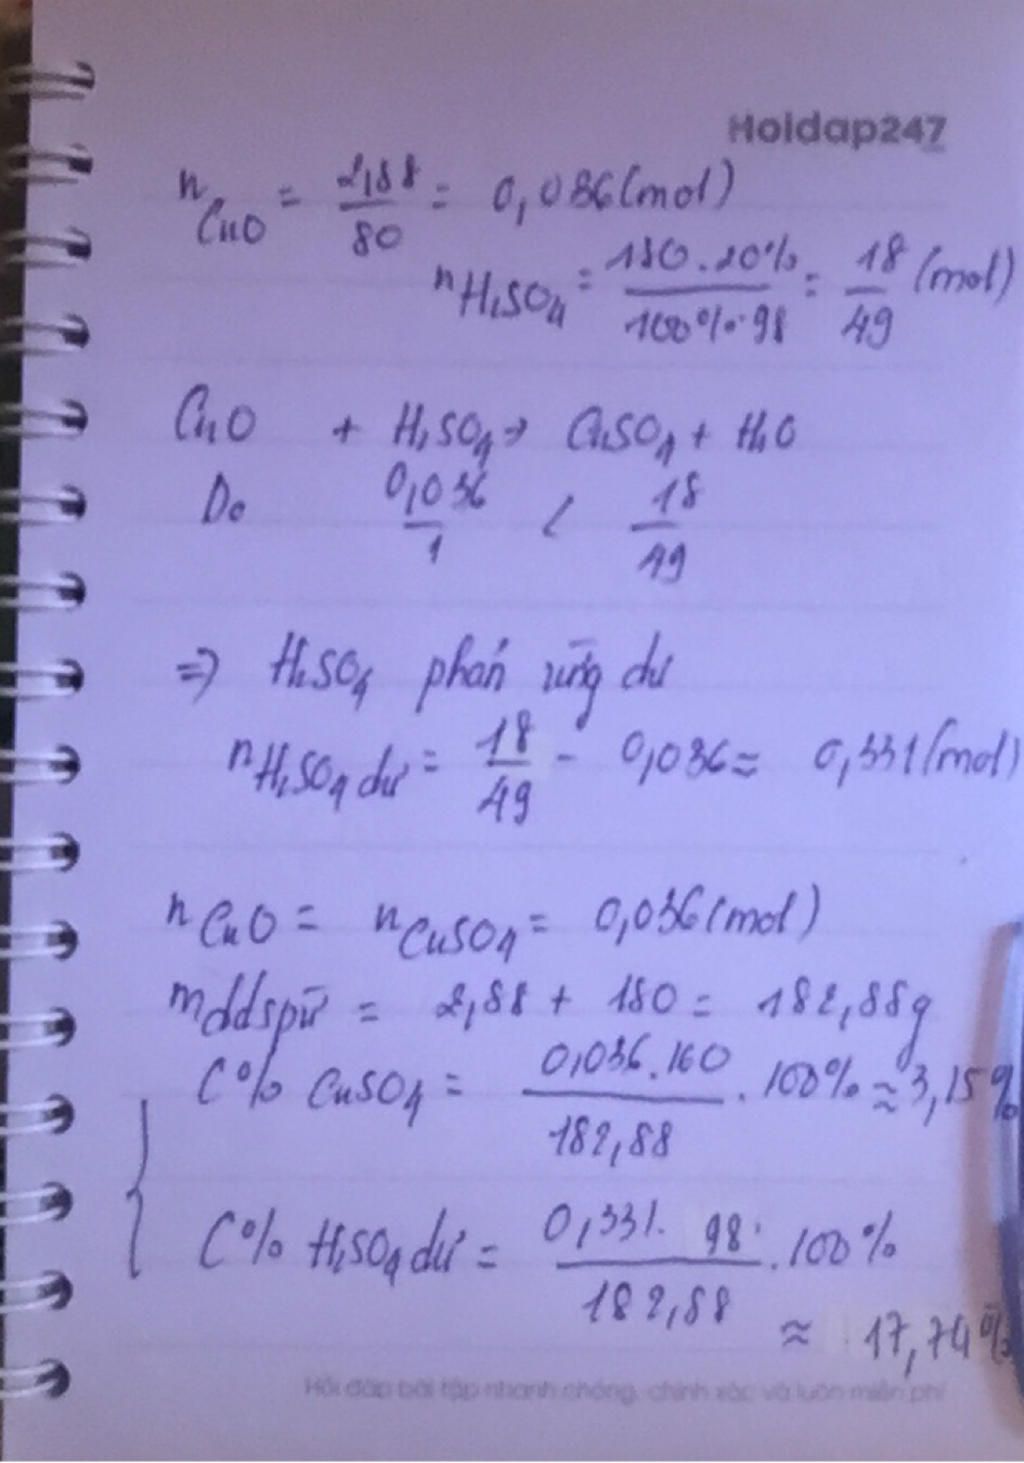 Hoidap247
nCuO = 2,88/80 = 0,036(mol)
nH2SO4 = 180.20%/100%.98 = 18/49 (mol)
CuO + H2SO4 → CuSO4 + H2O
Do 0,036/1 < 18/49
=> H2SO4 phản ứng dư
nH2SO4 dư = 18/49 - 0,036 ≈ 0,331(mol)
nCuO = nCuSO4 = 0,036(mol)
mddspứ = 2,88 + 180 = 182,88g
C% CuSO4 = 0,036.160/182,88 . 100% ≈ 3,15%
C% H2SO4 dư = 0,331. 98/182,88 . 100%
≈ 17,74%
Hỏi đáp bài tập nhanh chóng, chính xác và luôn miễn phí